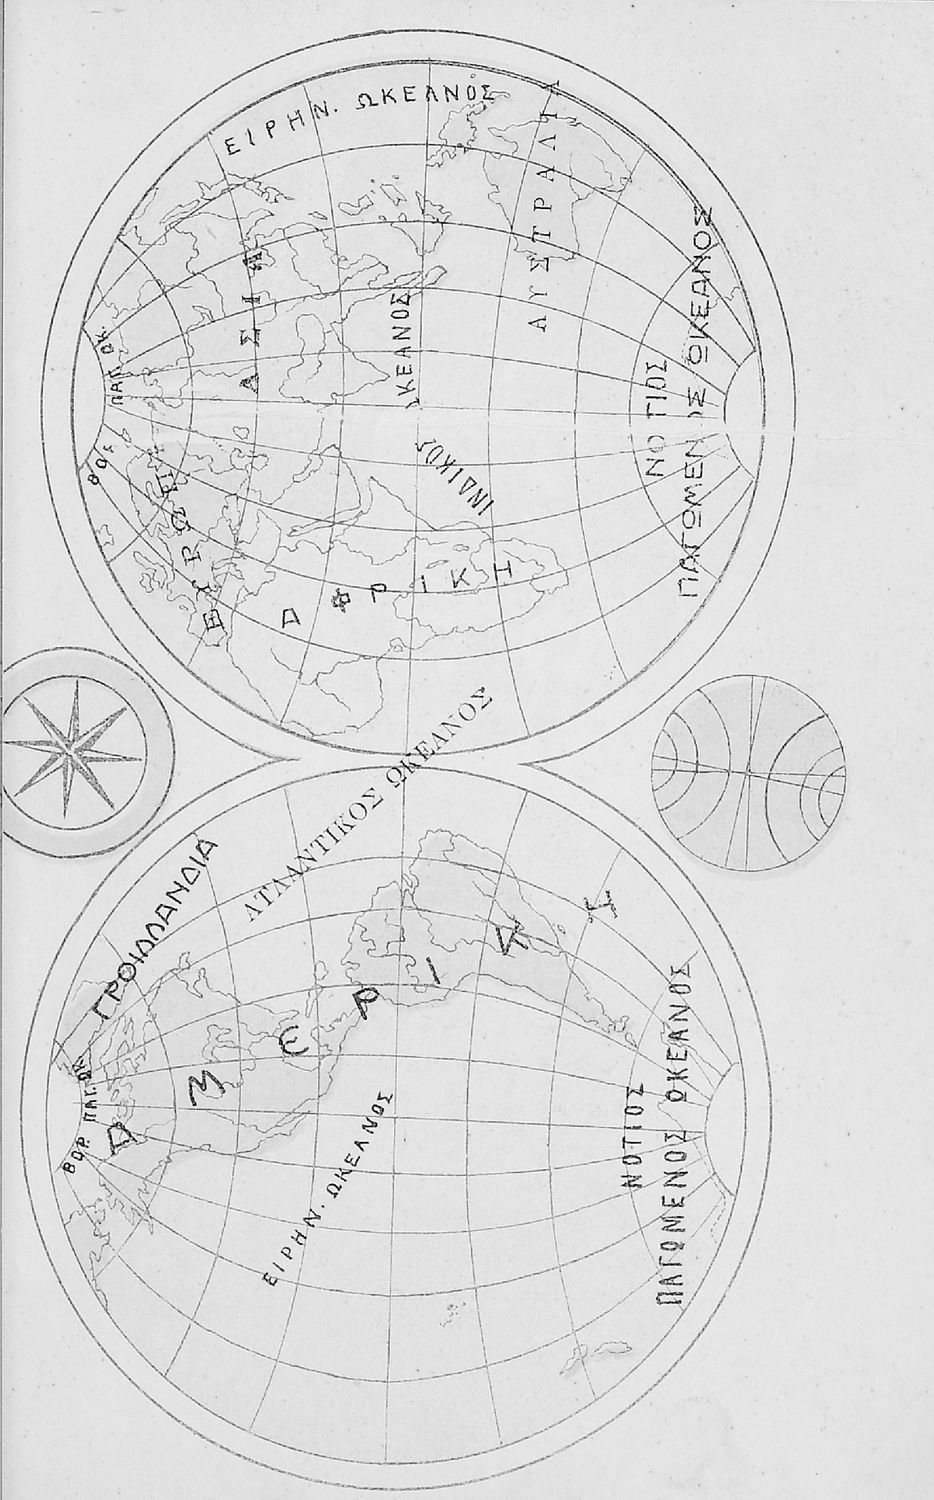 ΓΡΟΙΛΛΑΝΔΙΑ
ΒΟΡ. ΠΑΓ. ΩΚ.
ΑΜΕΡΙΚΗ
ΕΙΡΗΝ. ΩΚΕΑΝΟΣ
ΝΟΤΙΟΣ
ΠΑΓΩΜΕΝΟΣ ΩΚΕΑΝΟΣ
ΑΤΛΑΝΤΙΚΟΣ ΩΚΕΑΝΟΣ
ΒΟΡ. ΠΑΓ. ΩΚ.
ΑΣΙΑ
ΑΦΡΙΚΗ
ΙΝΔΙΚΟΣ
ΩΚΕΑΝΟΣ
ΕΙΡΗΝ. ΩΚΕΑΝΟΣ
ΑΥΣΤΡΑΛΙΑ
ΝΟΤΙΟΣ
ΠΑΓΩΜΕΝΟΣ ΩΚΕΑΝΟΣ